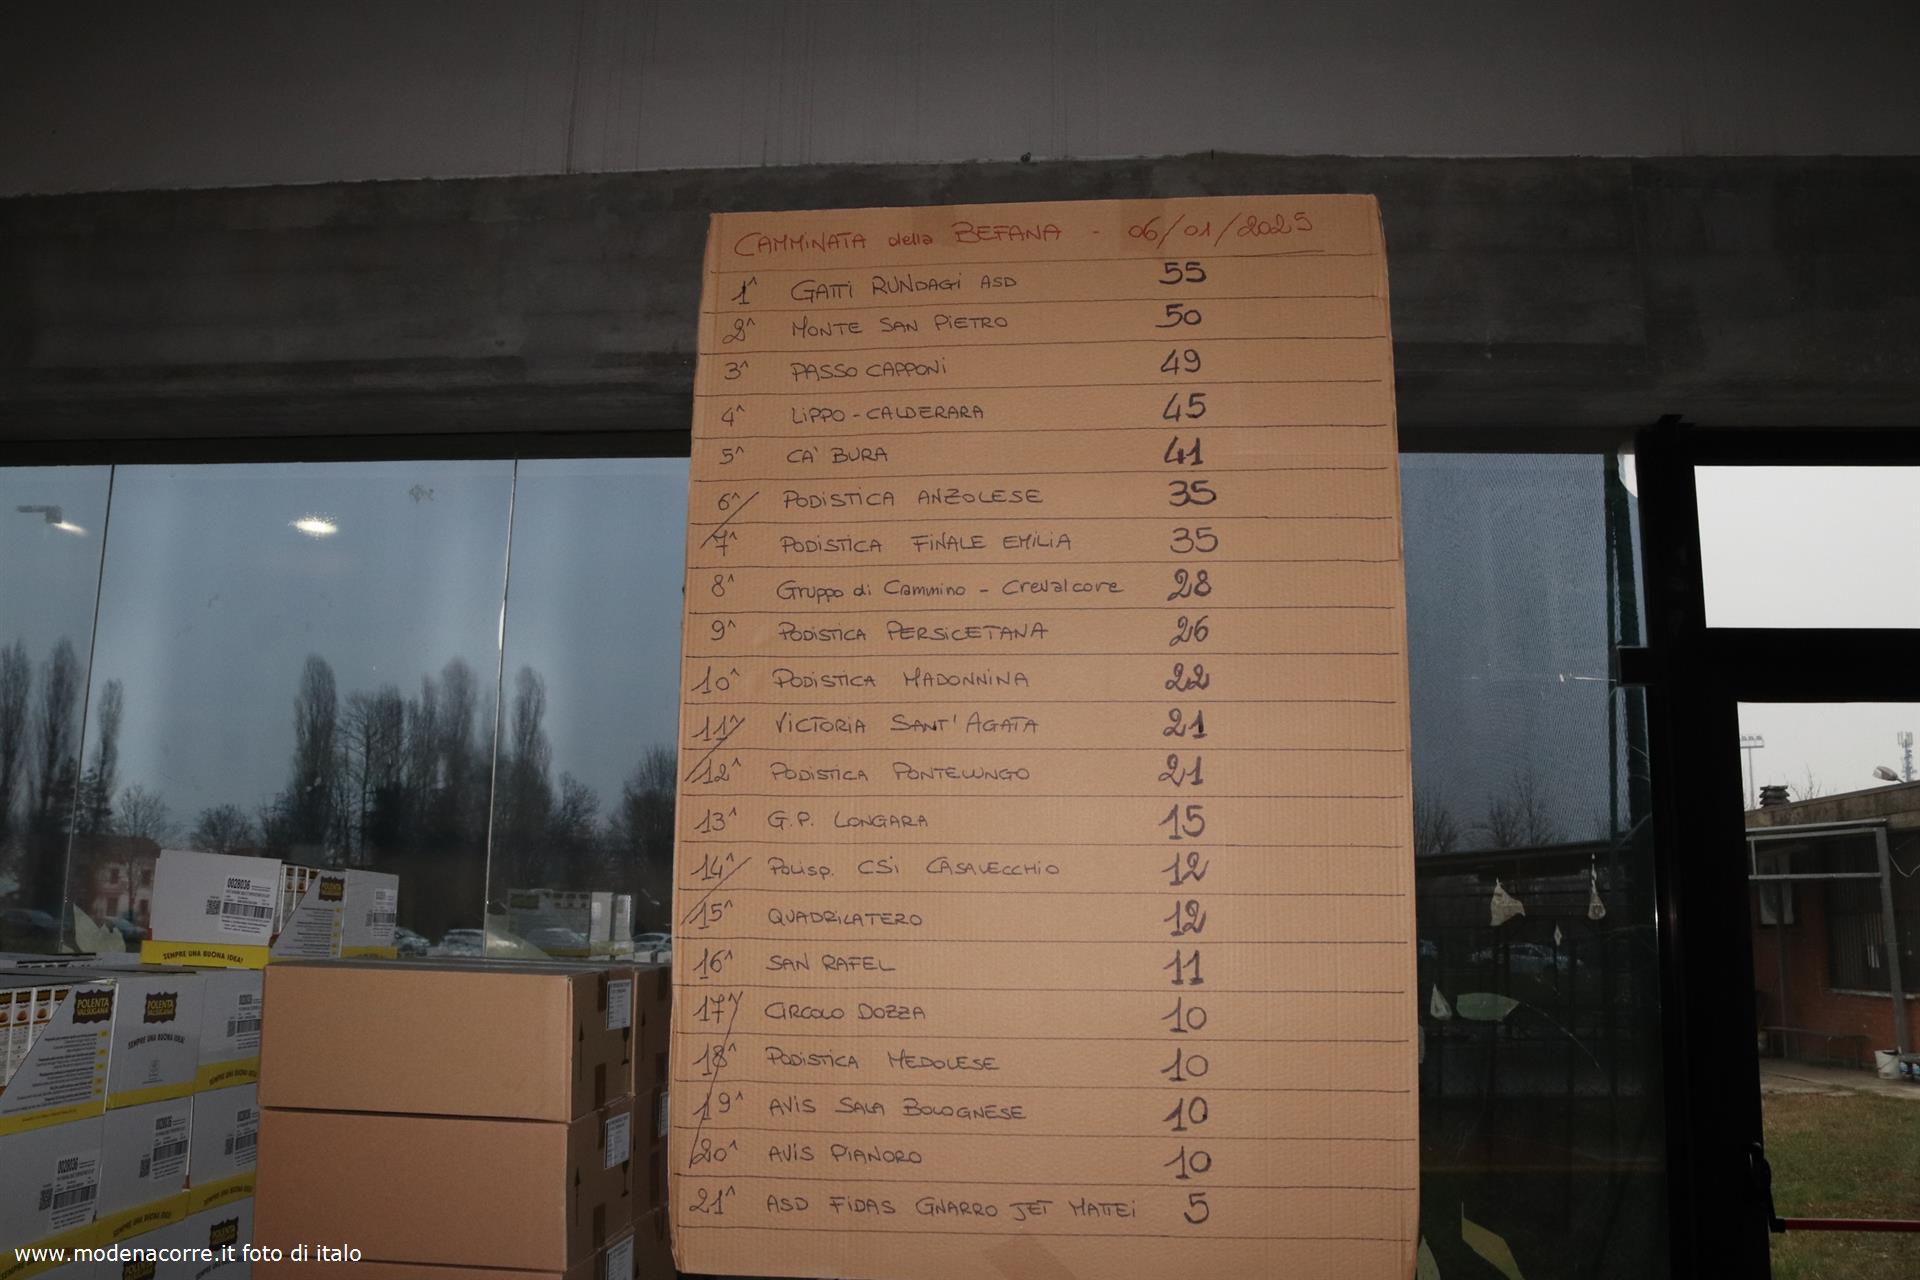 CAMMINATA della BEFANA - 06/01/2025
1^ GATTI RUNDAGI ASD 55
2^ MONTE SAN PIETRO 50
3^ PASSO CAPPONI 49
4^ LIPPO - CALDERARA 45
5^ CA' BURA 41
6^ PODISTICA ANZOLESE 35
7^ PODISTICA FINALE EMILIA 35
8^ Gruppo di Cammino - Crevalcore 28
9^ PODISTICA PERSICETANA 26
10^ PODISTICA MADONNINA 22
11^ VICTORIA SANT'AGATA 21
12^ PODISTICA PONTELUNGO 21
13^ G.P. LONGARA 15
14^ POLISP. CSI CASALECCHIO 12
15^ QUADRILATERO 12
16^ SAN RAFEL 11
17^ CIRCOLO DOZZA 10
18^ PODISTICA MEDOLESE 10
19^ AVIS SALA BOLOGNESE 10
20^ AVIS PIANORO 10
21^ ASD FIDAS GNARRO JET MATTEI 5
0028036
SEMPRE UNA BUONA IDEA!
POLENTA VALSUGANA
POLENTA VALSUGANA
SEMPRE UNA BUONA IDEA!
0028036
0028036
www.modenacorre.it foto di italo